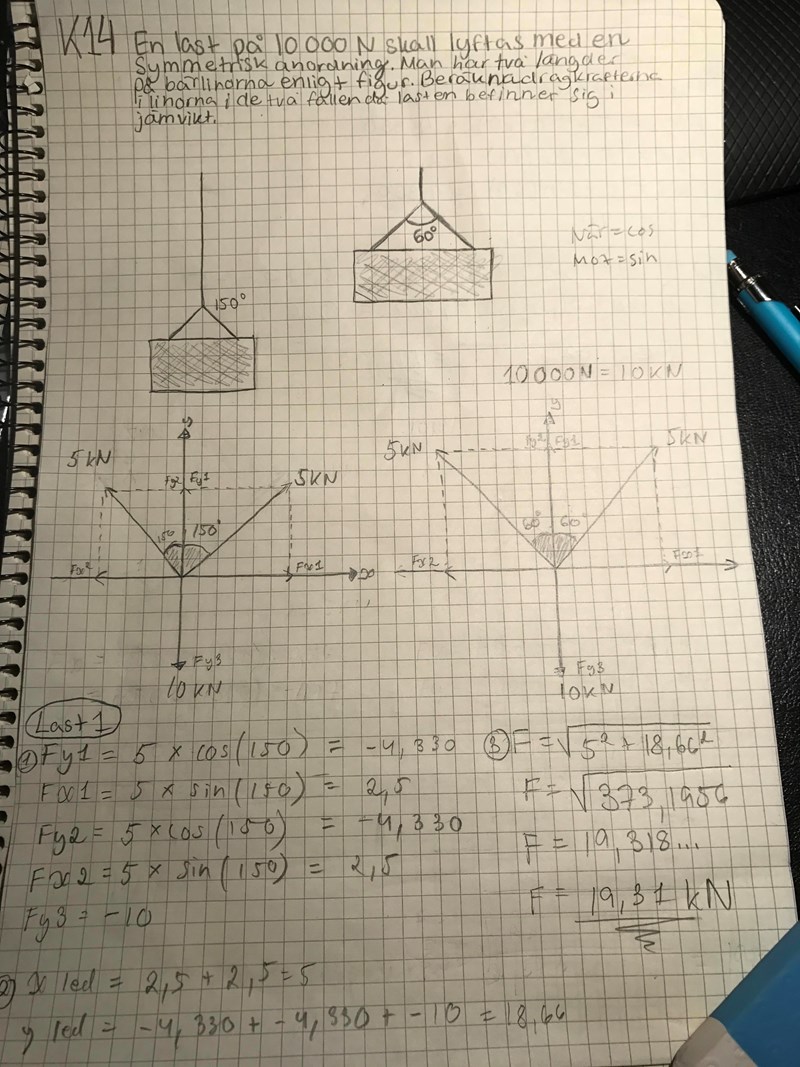 K14 En last på 10 000 N skall lyftas med en
symmetrisk anordning. Man har två längder
på bärlinorna enligt figur. Beräkna dragkrafterna
i linorna i de två fallen då lasten befinner sig i
jämvikt.
150°
60°
När = cos
Mot = sin
10 000N = 10 KN
y
5 kN
Fy2 Fy1
5KN
150 150°
Fx2
Fx1
x
Fy3
10 KN
y
5KN
Fy2 Fy1
5KN
60° 60°
Fx2
Fx1
Fy3
10KN
Last 1
① Fy1 = 5 × cos(150) = -4,330
Fx1 = 5 × sin(150) = 2,5
Fy2 = 5 × cos(150) = -4,330
Fx2 = 5 × sin(150) = 2,5
Fy3 = -10
2) x led = 2,5 + 2,5 = 5
y led = -4,330 + -4,330 + -10 = 18,66
③ F = √5² + 18,66²
F = √373,1956
F = 19,318...
F = 19,31 kN